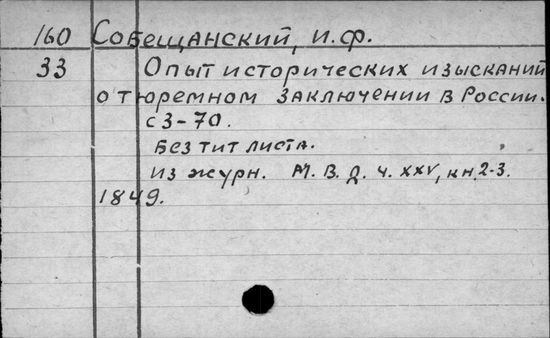 160 Собещанский, и.ф.
33 Опыт исторических изысканий
о тюремном заключении в России.
с 3-70.
Без тит листа.
Из журн. М. В. Д. ч. XXV, кн. 2-3.
1849.